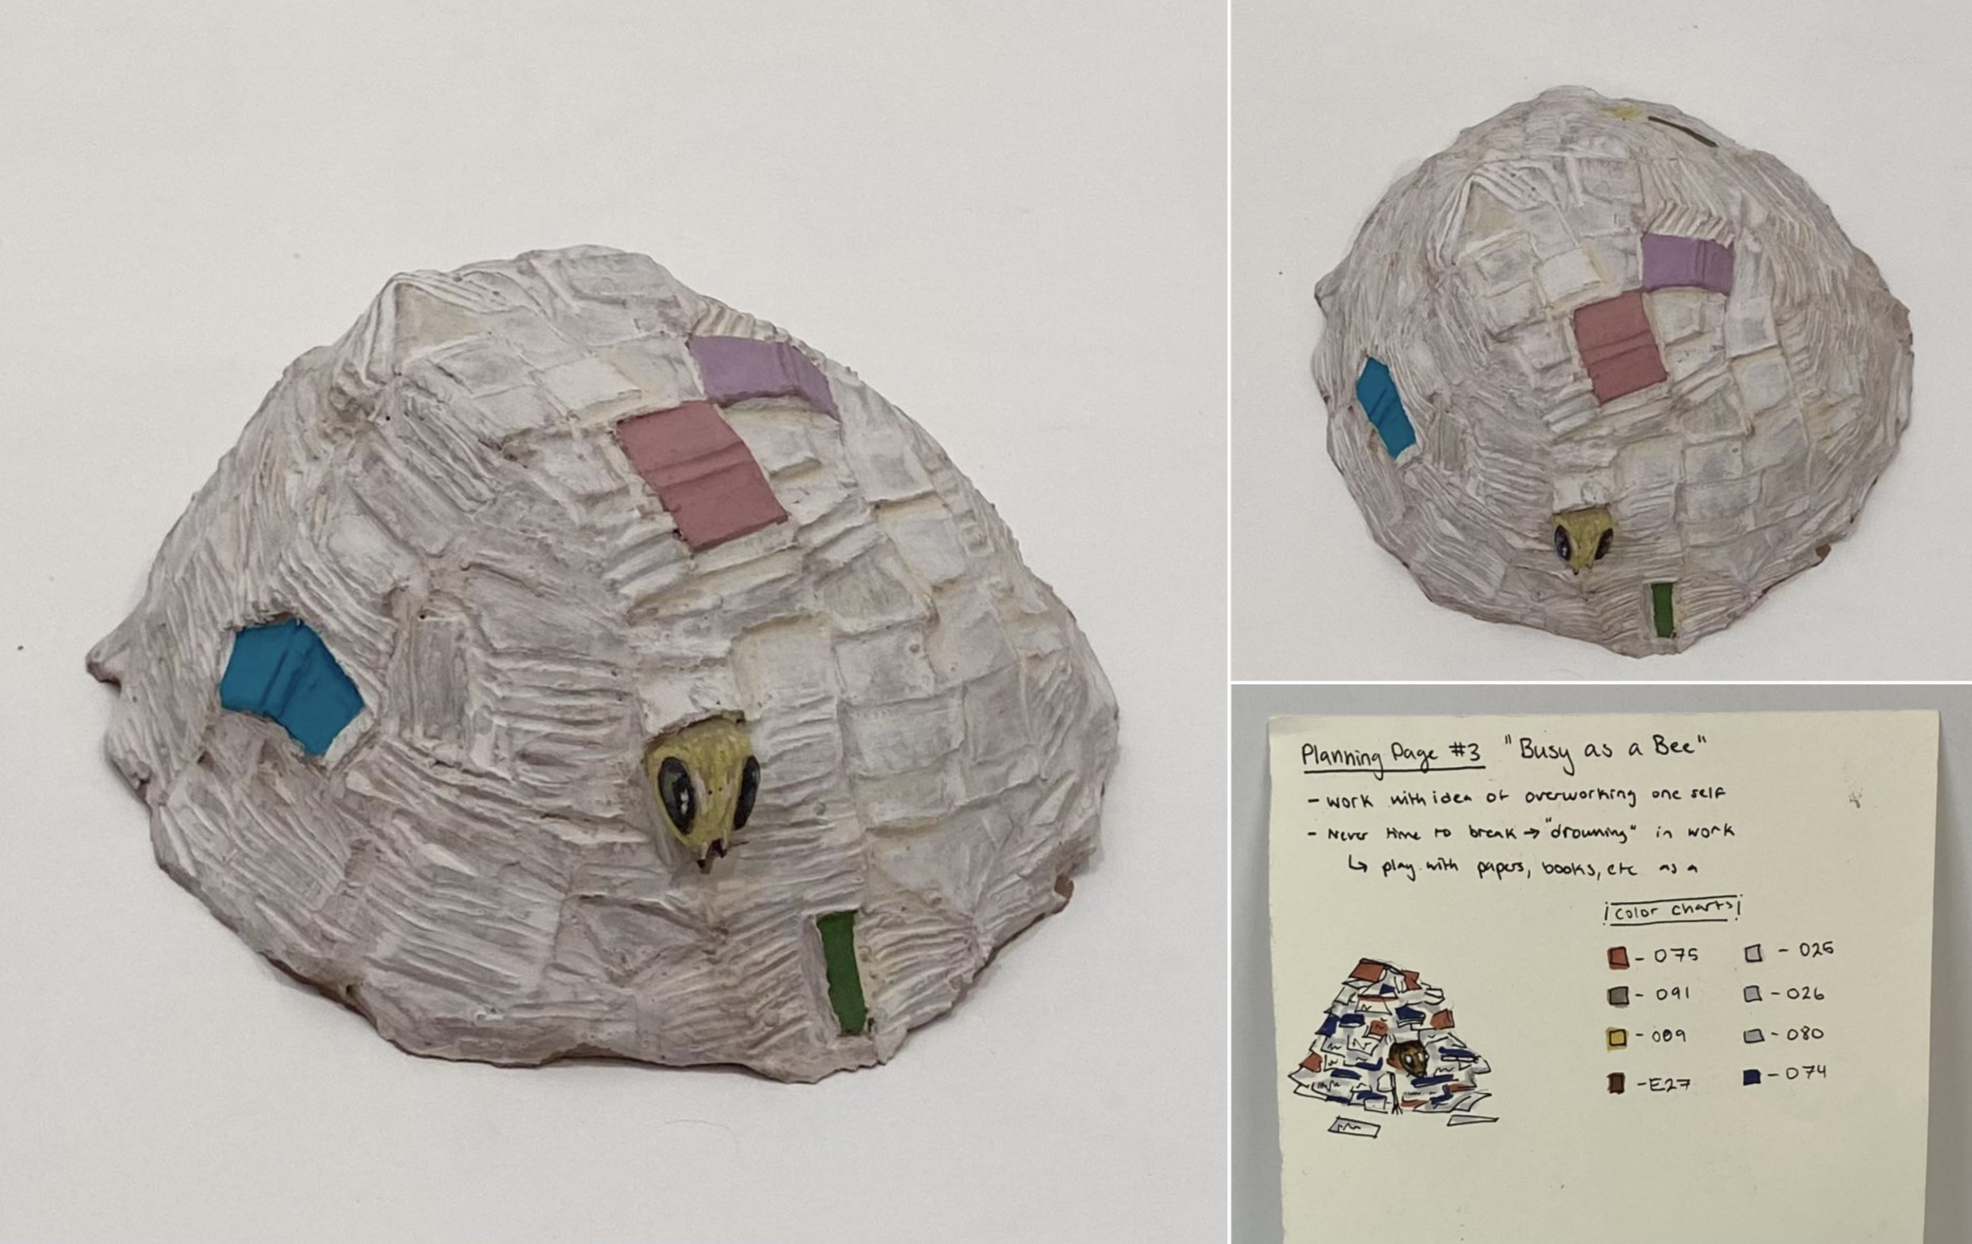 Planning Page #3 "Busy as a Bee"
- work with idea of overworking one self
- Never time to break → "drowning" in work
↳ play with papers, books, etc as a
¡Color charts!
- 075
- 025
- 091
- 026
- 009
- 080
- E27
- 074